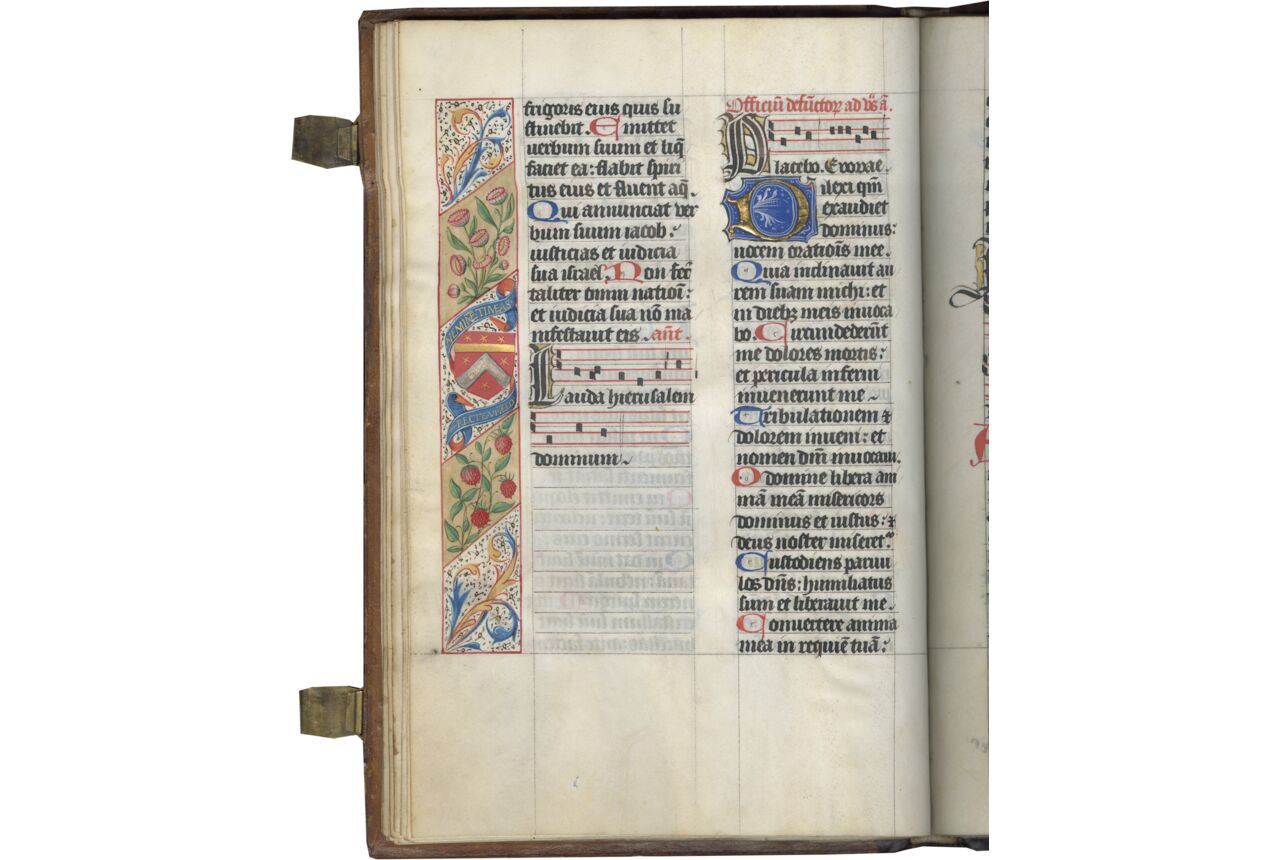 frigoris eius quis su
stinebit. Emittet
uerbum suum et liq̄
faciet ea: flabit spiri
tus eius et fluent aq̄.
Qui annunciat ver
bum suum iacob:
iusticias et iudicia
sua israel. Non fec̄
taliter omni natiōi:
et iudicia sua nō ma
nifestauit eis. ant̄.
Lauda hierusalem
dominum
Officiū defūctoꝝ ad vs̄ a.
Placebo. Evovae.
Dilexi qm̄
exaudiet
dominus:
uocem oratiōis mee.
Quia inclinauit au
rem suam michi: et
in diebꝫ meis inuoca
bo. Circundederūt
me dolores mortis:
et pericula inferni
inuenerunt me
Tribulationem ⁊
dolorem inueni: et
nomen dn̄i inuocaui.
O domine libera ani
mā meā misericors
dominus et iustus: ⁊
deus noster miseret.
Custodiens paruu
los dn̄s: humiliatus
sum et liberauit me.
Conuertere anima
mea in requiē tuā: